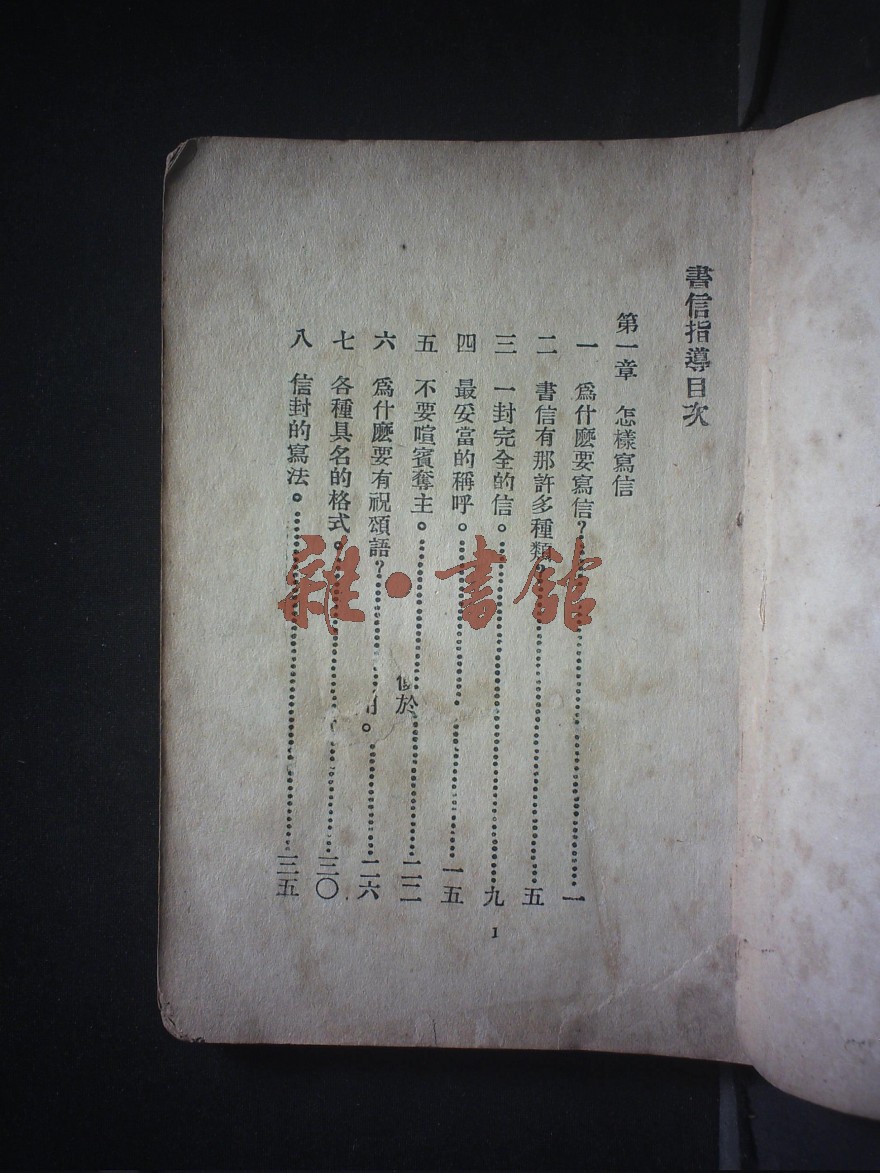 書信指導目次
第一章 怎樣寫信
一 爲什麽要寫信？……一
二 書信有那許多種類？……五
三 一封完全的信。……九
四 最妥當的稱呼。……一五
五 不要喧賓奪主。……二二
六 爲什麽要有祝頌語？……二六
七 各種具名的格式。……三〇
八 信封的寫法。……三五
於
1
雜·書館